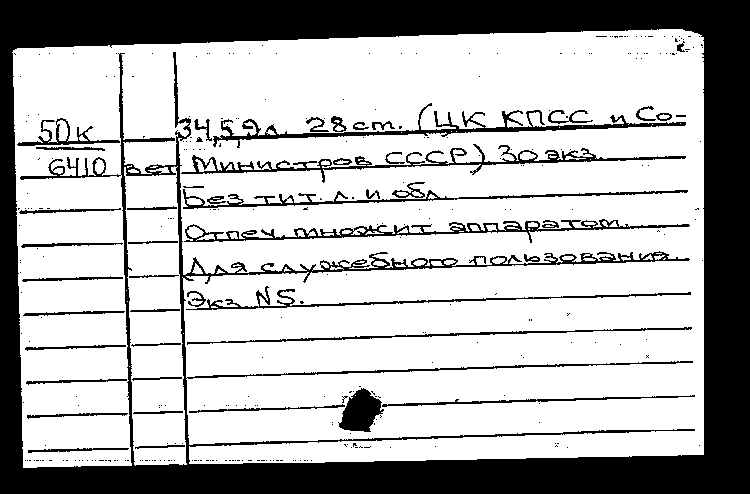 2
50к 34,5,9 л. 28 ст. (ЦК КПСС и Со-
6410 вет Министров СССР) 30 экз.
Без тит. л. и обл.
Отпеч. множит. аппаратом.
Для служебного пользования.
Экз. N5.